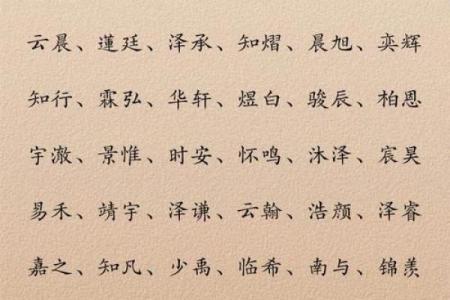 云晨、蓮廷、泽承、知熠、晨旭、奕辉
知行、霖弘、华轩、煜白、骏辰、柏恩
宇澈、景惟、时安、怀鸣、沐泽、宸昊
易禾、靖宇、泽谦、云翰、浩颜、泽睿
嘉之、知凡、少禹、临希、南与、锦羡